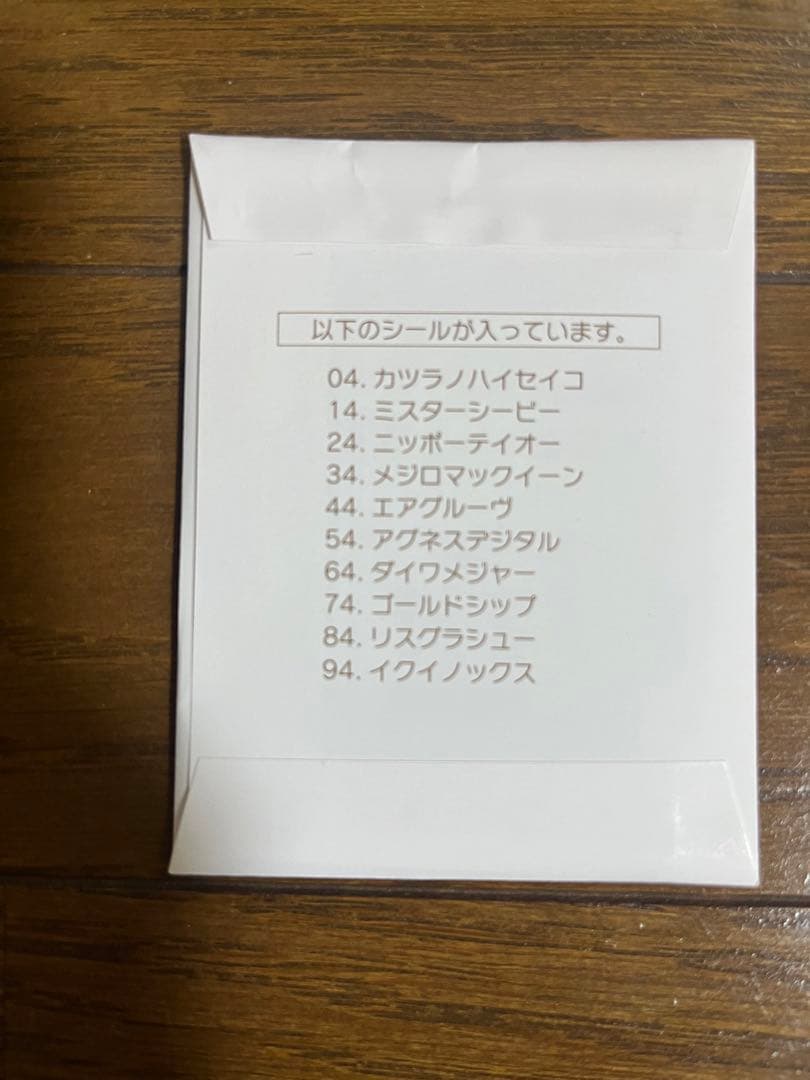 以下のシールが入っています。
04.カツラノハイセイコ
14.ミスターシービー
24.ニッポーテイオー
34.メジロマックイーン
44.エアグルーヴ
54.アグネスデジタル
64.ダイワメジャー
74.ゴールドシップ
84.リスグラシュー
94.イクイノックス